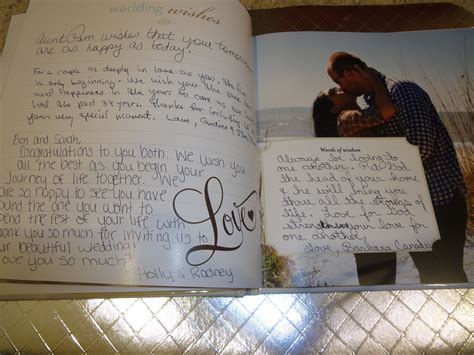 wedding wishes
Aunt Pam wishes that your tomorrows
are as happy as today.
For a couple as deeply in love as you, the
is only beginning. We wish you the same
and happiness in the years to come as we
had the past 34 years. Thanks for including us
your very special moment. Love, Candice &
Ben and Sarah,
Congratulations to you both. We wish you
all the best as you begin your
Journey of life together. We
are so happy to see you have
found the one you want to
spend the rest of your life with
Thank you so much for inviting us to
your beautiful wedding!
Love you so much!
Holly & Rodney
Love
Words of wisdom
Always be loving to
one another. Put God
the head of your home
& he will bring you
thru all the storms of
life. Love for God
strengthens your love for
one another.
Love, Barbara